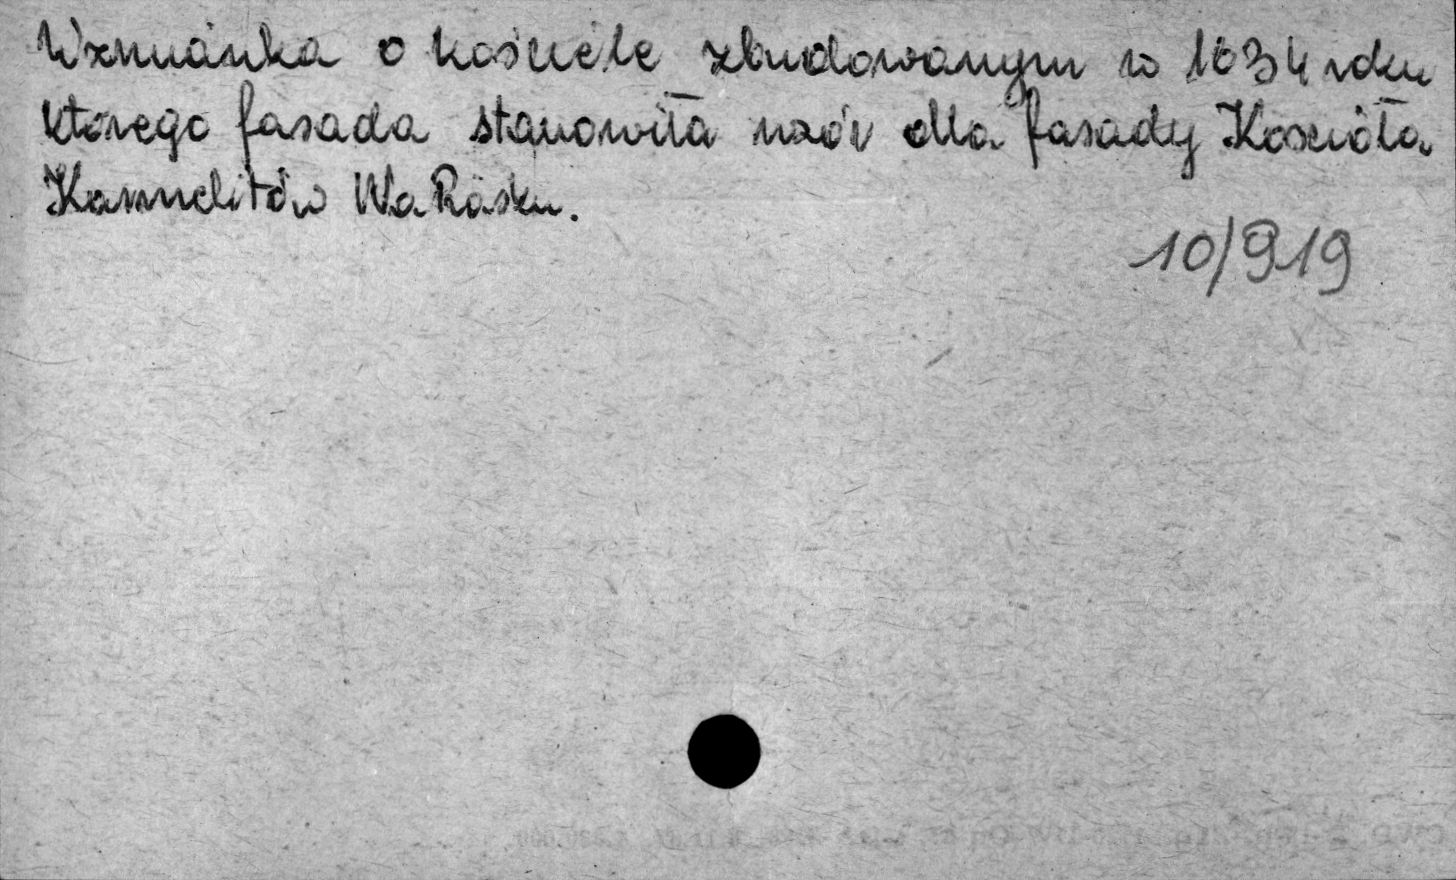 Wzmianka o kościele zbudowanym w 1634 roku
którego fasada stanowiła wzór dla fasady Kościoła
Karmelitów Na Piasku.
10/919